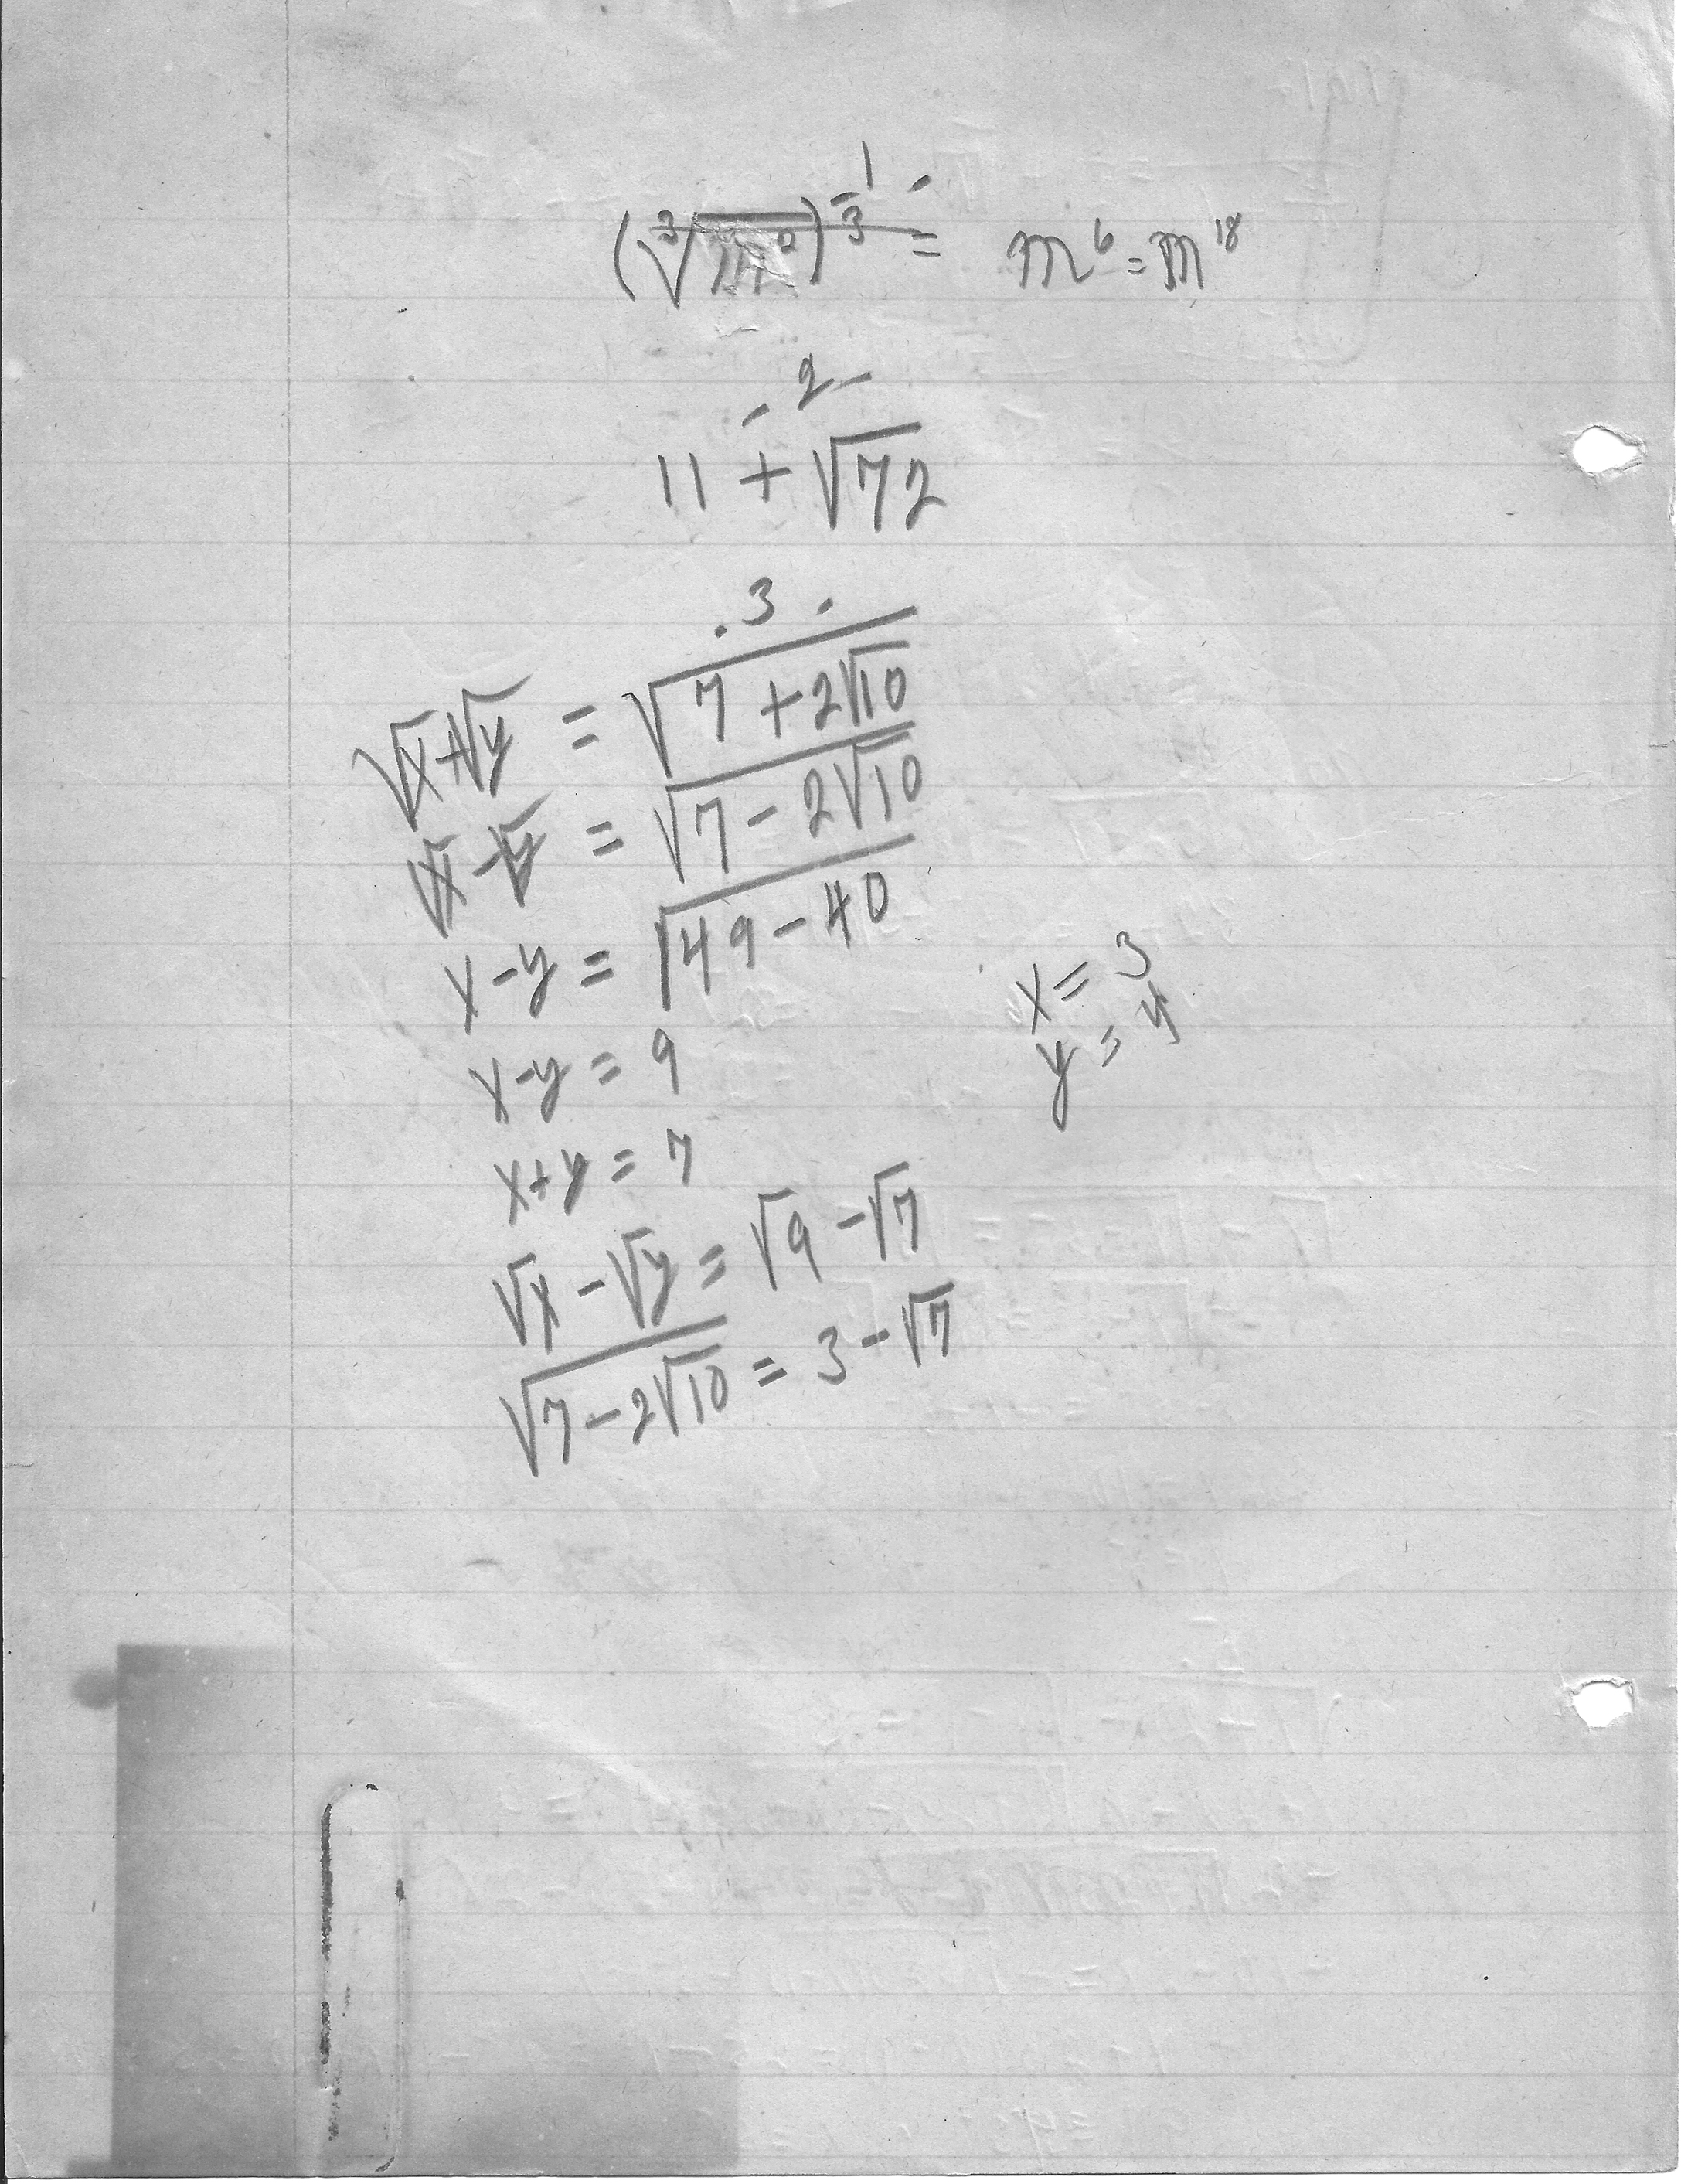 - 1 -
(∛m²)^⅓ = m⁶ = m¹⁸
- 2 -
11 + √72
. 3 .
√x + √y = √(7 + 2√10)
√x - √y = √(7 - 2√10)
x - y = √(49 - 40)
x - y = 9
x + y = 7
x = 3
y = 4
√x - √y = √9 - √7
√(7 - 2√10) = 3 - √7